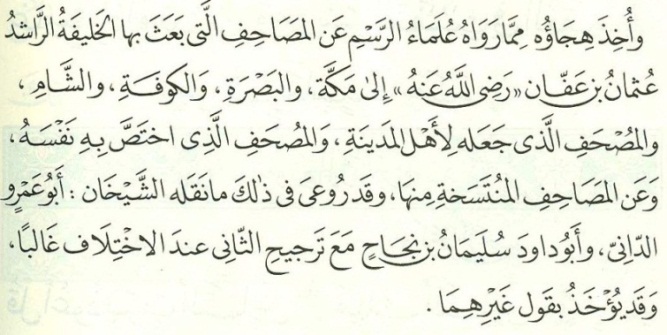 وأُخِذَ هِجَاؤُه مِمَّا رَوَاهُ عُلَمَاءُ الرَّسْمِ عَن المَصَاحِفِ الَّتى بَعَثَ بها الخَليفَةُ الرَّاشدُ
عُثمَانُ بن عَفّان «رَضى اللَّهُ عَنهُ» إلىٰ مَكَّةَ، والبَصْرَةِ، وَالكوفَةِ، والشَّامِ،
والمُصْحَفِ الَّذى جَعَله لِأَهْلِ المَدينَةِ، وَالمُصحَفِ الَّذِى اختَصَّ بِهِ نَفْسَهُ،
وَعَن المَصَاحِفِ المُنْتَسَخَةِ مِنهَا، وقَد رُوعىَ فى ذٰلكَ مَانَقَله الشَّيْخَان : أَبُوعَمْرٍو
الدّانِىّ، وأَبُودَاودَ سُلَيمَانُ بن نَجَاحٍ مَعَ تَرجيحِ الثّانى عندَ الاخْتِلَافِ غَالبًا،
وَقَد يُؤْخَذُ بقَول غَيْرِهِمَا .